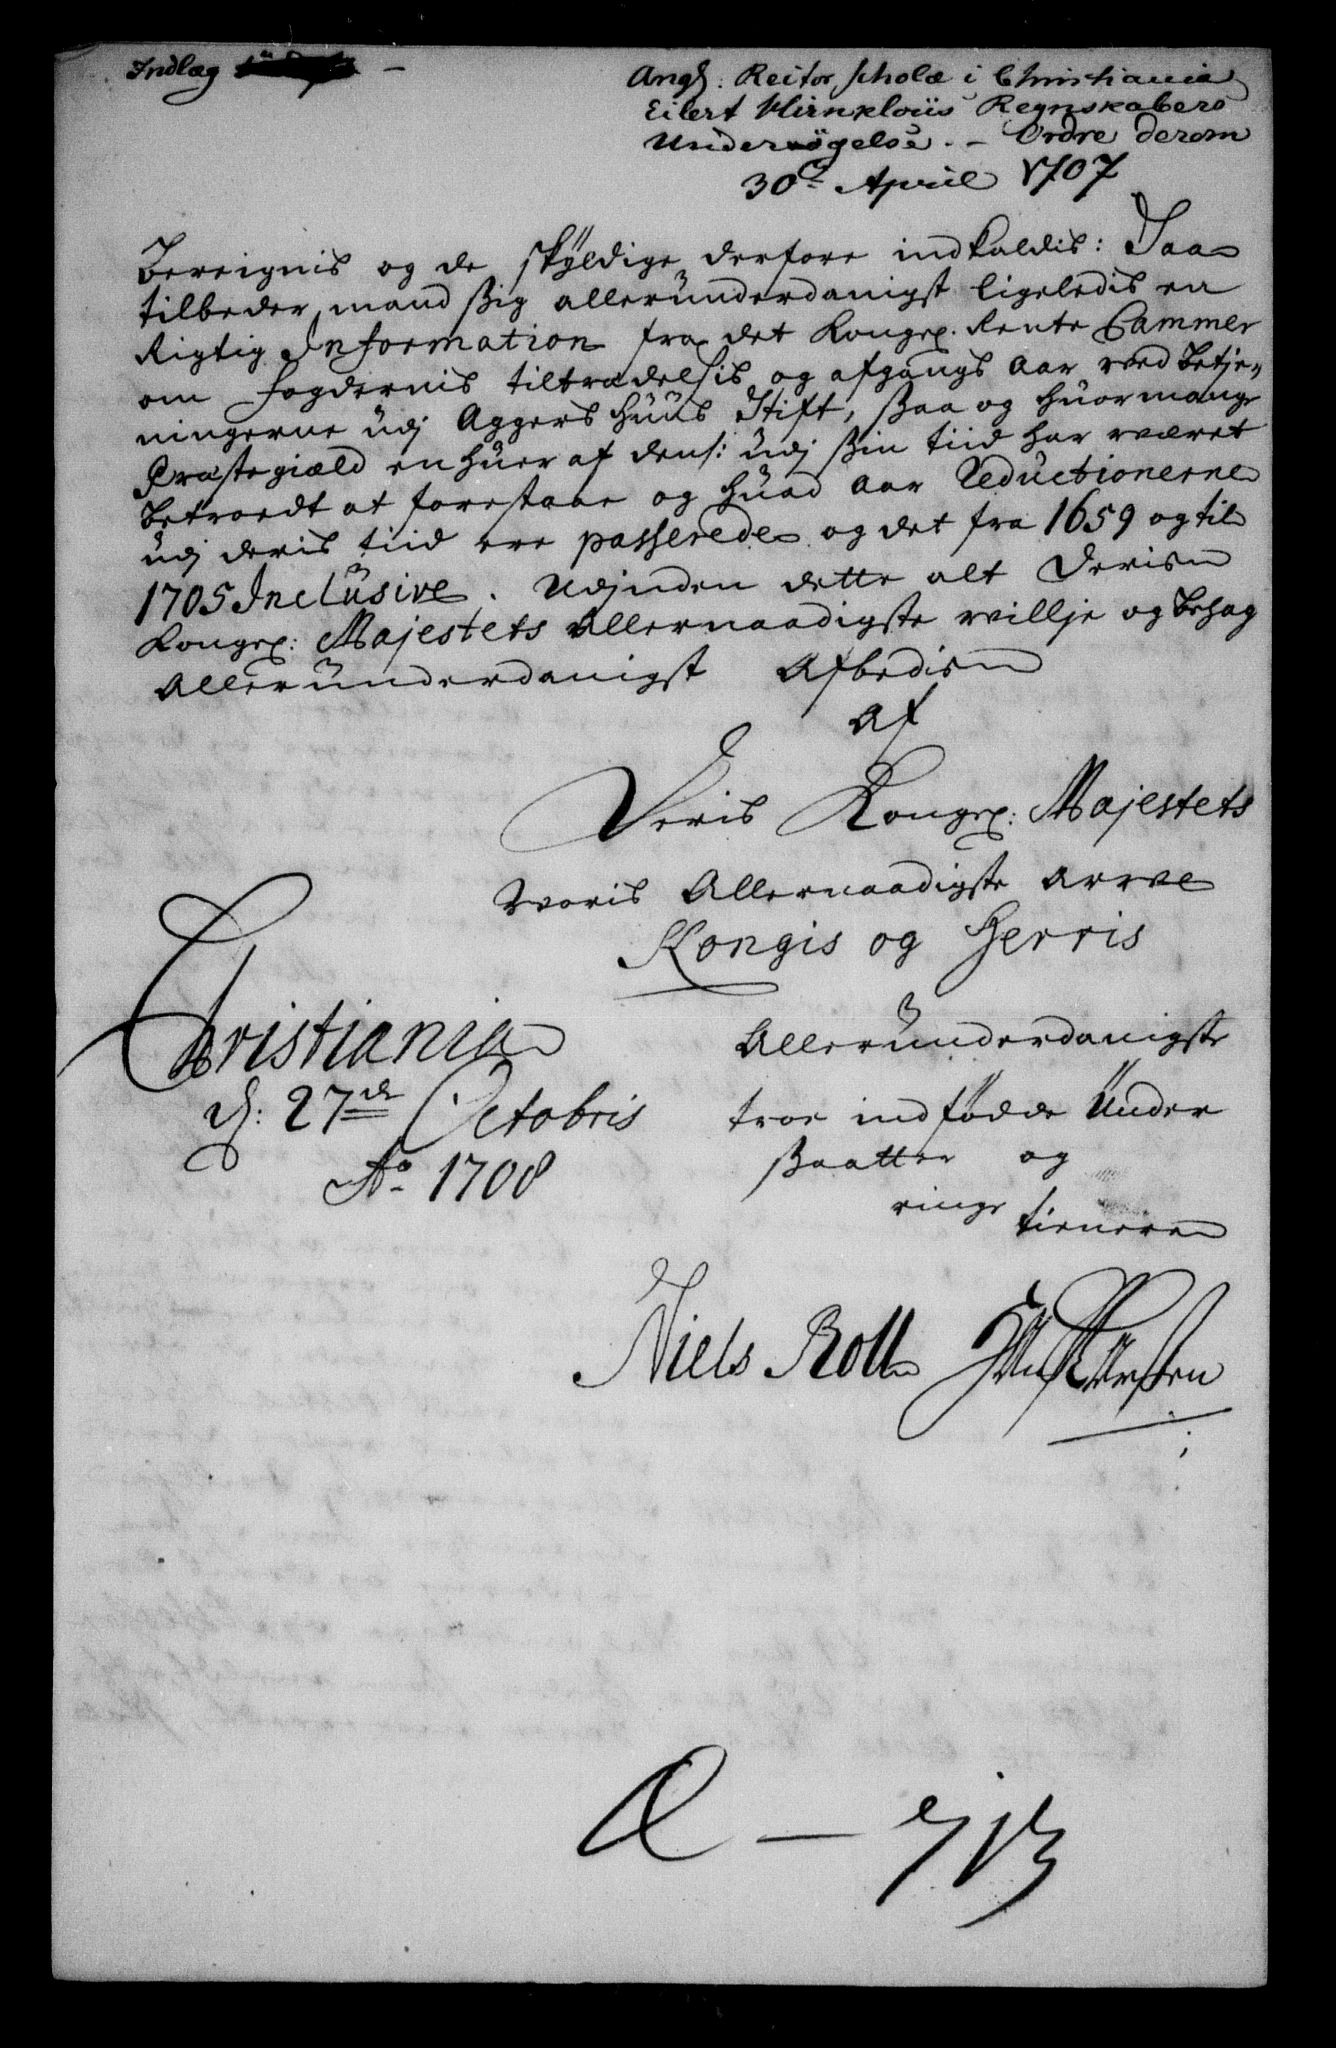 Indlæg
Ang: Rector scholæ i Christiania
Eilert Hirnkloüs Regnskabers
Undersøgelse. – Ordre derom
30te Apriil 1707
Bereignis og de skÿldige derfore indkaldis: Saa
tilbeder mand ßig alleründerdanigst ligeledis en
Rigtig Information fra det Kongel. Rente Cammer
om fogdernis tiltrædelsis og afgangs Aar ved betje-
ningerne üdj Aggershüüs Stift, ßaa og hüor mange
Præstegiæld en hüer af dens: üdj ßin tiid har wæret
betroedt at forestaae og hüad Aar Reductionerne
üdj deris tiid ere passerede og det fra 1659 og til
1705 Inclüsive. Udjnden dette alt Derisn
Kongel: Majestets Allernaadigste willje og behag
Alleründerdanigst Afbedisn
Af
Deris Kongel: Majestets
Woris Allernaadigste Arrve
Kongis og Herris
Christiania
d: 27de Octobris
Ao 1708
Alleründerdanigste
troe indfødde Ünder
ßaatter og
ringe tienere
Niels Roll
Æ – 713